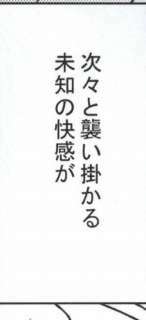 次々と襲い掛かる
未知の快感が